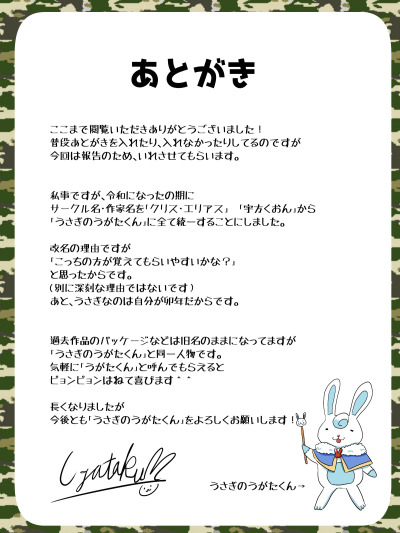 あとがき
ここまで閲覧いただきありがとうございました！
普段あとがきを入れたり、入れなかったりしてるのですが
今回は報告のため、いれさせてもらいます。
私事ですが、令和になったの期に
サークル名・作家名を「クリス・エリアス」「宇方くおん」から
「うさぎのうがたくん」に全て統一することにしました。
改名の理由ですが
「こっちの方が覚えてもらいやすいかな？」
と思ったからです。
(別に深刻な理由ではないです)
あと、うさぎなのは自分が卯年だからです。
過去作品のパッケージなどは旧名のままになってますが
「うさぎのうがたくん」と同一人物です。
気軽に「うがたくん」と呼んでもらえると
ピョンピョンはねて喜びます＾＾
長くなりましたが
今後とも「うさぎのうがたくん」をよろしくお願いします！
Ugataku
うさぎのうがたくん→